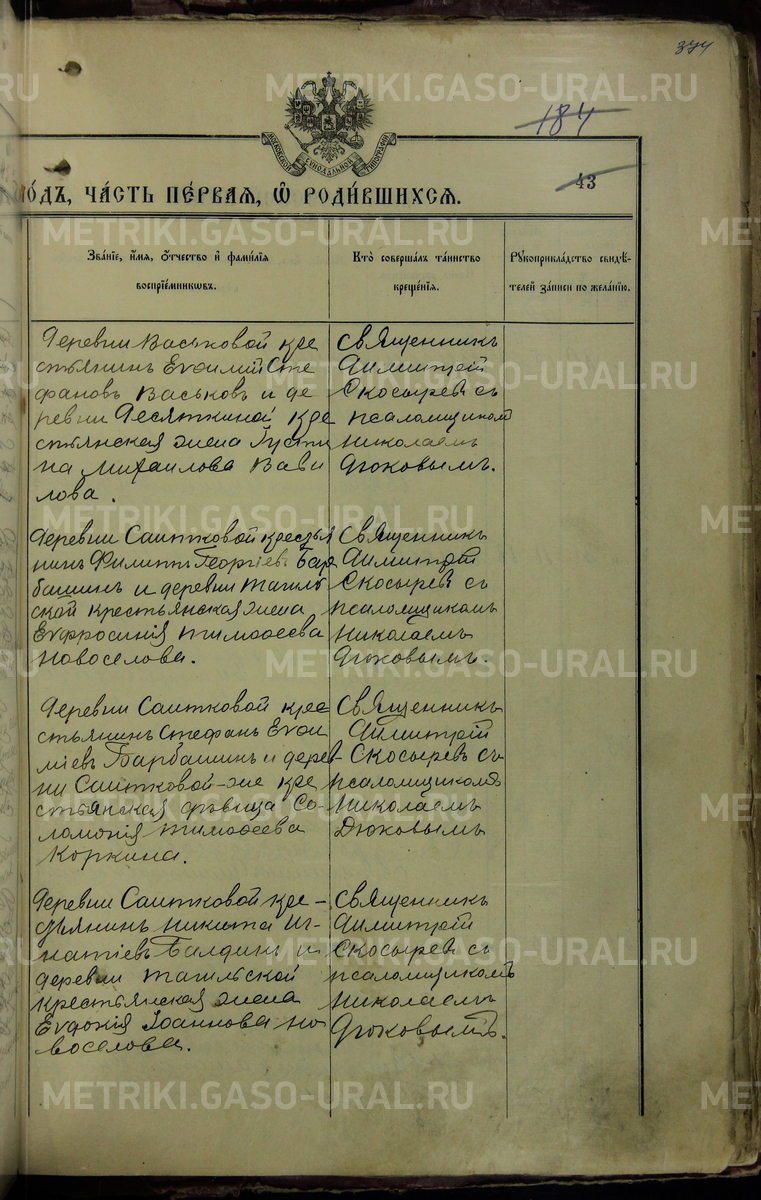 374
184
43
МОСКОВСКОЙ СѴНОДАЛЬНОЙ ТИПОГРАФІИ
го́дъ, ча́сть пе́рвая, ѡ҆ роди́вшихсѧ.
Зва́нїе, и҆́мѧ, ѻ҆́тчество и҆ фами́лїѧ
воспрїе́мникѡвъ.
Кто̀ соверша́лъ та́инство
креще́нїѧ.
Рꙋкоприкла́дство свидѣ́-
телей за́писи по жела́нїю.
Деревни Васьковой кре
стьянинъ Евѳимій Сте
фановъ Васьковъ и де
ревни Десяткиной кре
стьянская жена Густи
на Михаилова Вави
лова.
Священникъ
Димитрій
Скосыревъ съ
псаломщикомъ
Николаемъ
Дюковымъ.
Деревни Саитковой крестья
нинъ Филиппъ Георгіевъ Бар
башинъ и деревни Тагиль
ской крестьянская жена
Евфросинія Тимоѳеева
Новоселова.
Священникъ
Димитрій
Скосыревъ съ
псаломщикомъ
Николаемъ
Дюковымъ.
Деревни Саитковой кре
стьянинъ Стефанъ Евѳи
міевъ Барбашинъ и дерев-
ни Саитковой-же кре
стьянская дѣвица Со
ломонія Тимоѳеева
Коркина.
Священникъ
Димитрій
Скосыревъ съ
псаломщикомъ
Николаемъ
Дюковымъ
Деревни Саитковой кре-
стьянинъ Никита Иг
натіевъ Балдинъ и
деревни Тагильской
крестьянская жена
Евдокія Іоаннова Но
воселова.
Священникъ
Димитрій
Скосыревъ съ
псаломщикомъ
Николаемъ
Дюковымъ.
METRIKI.GASO-URAL.RU